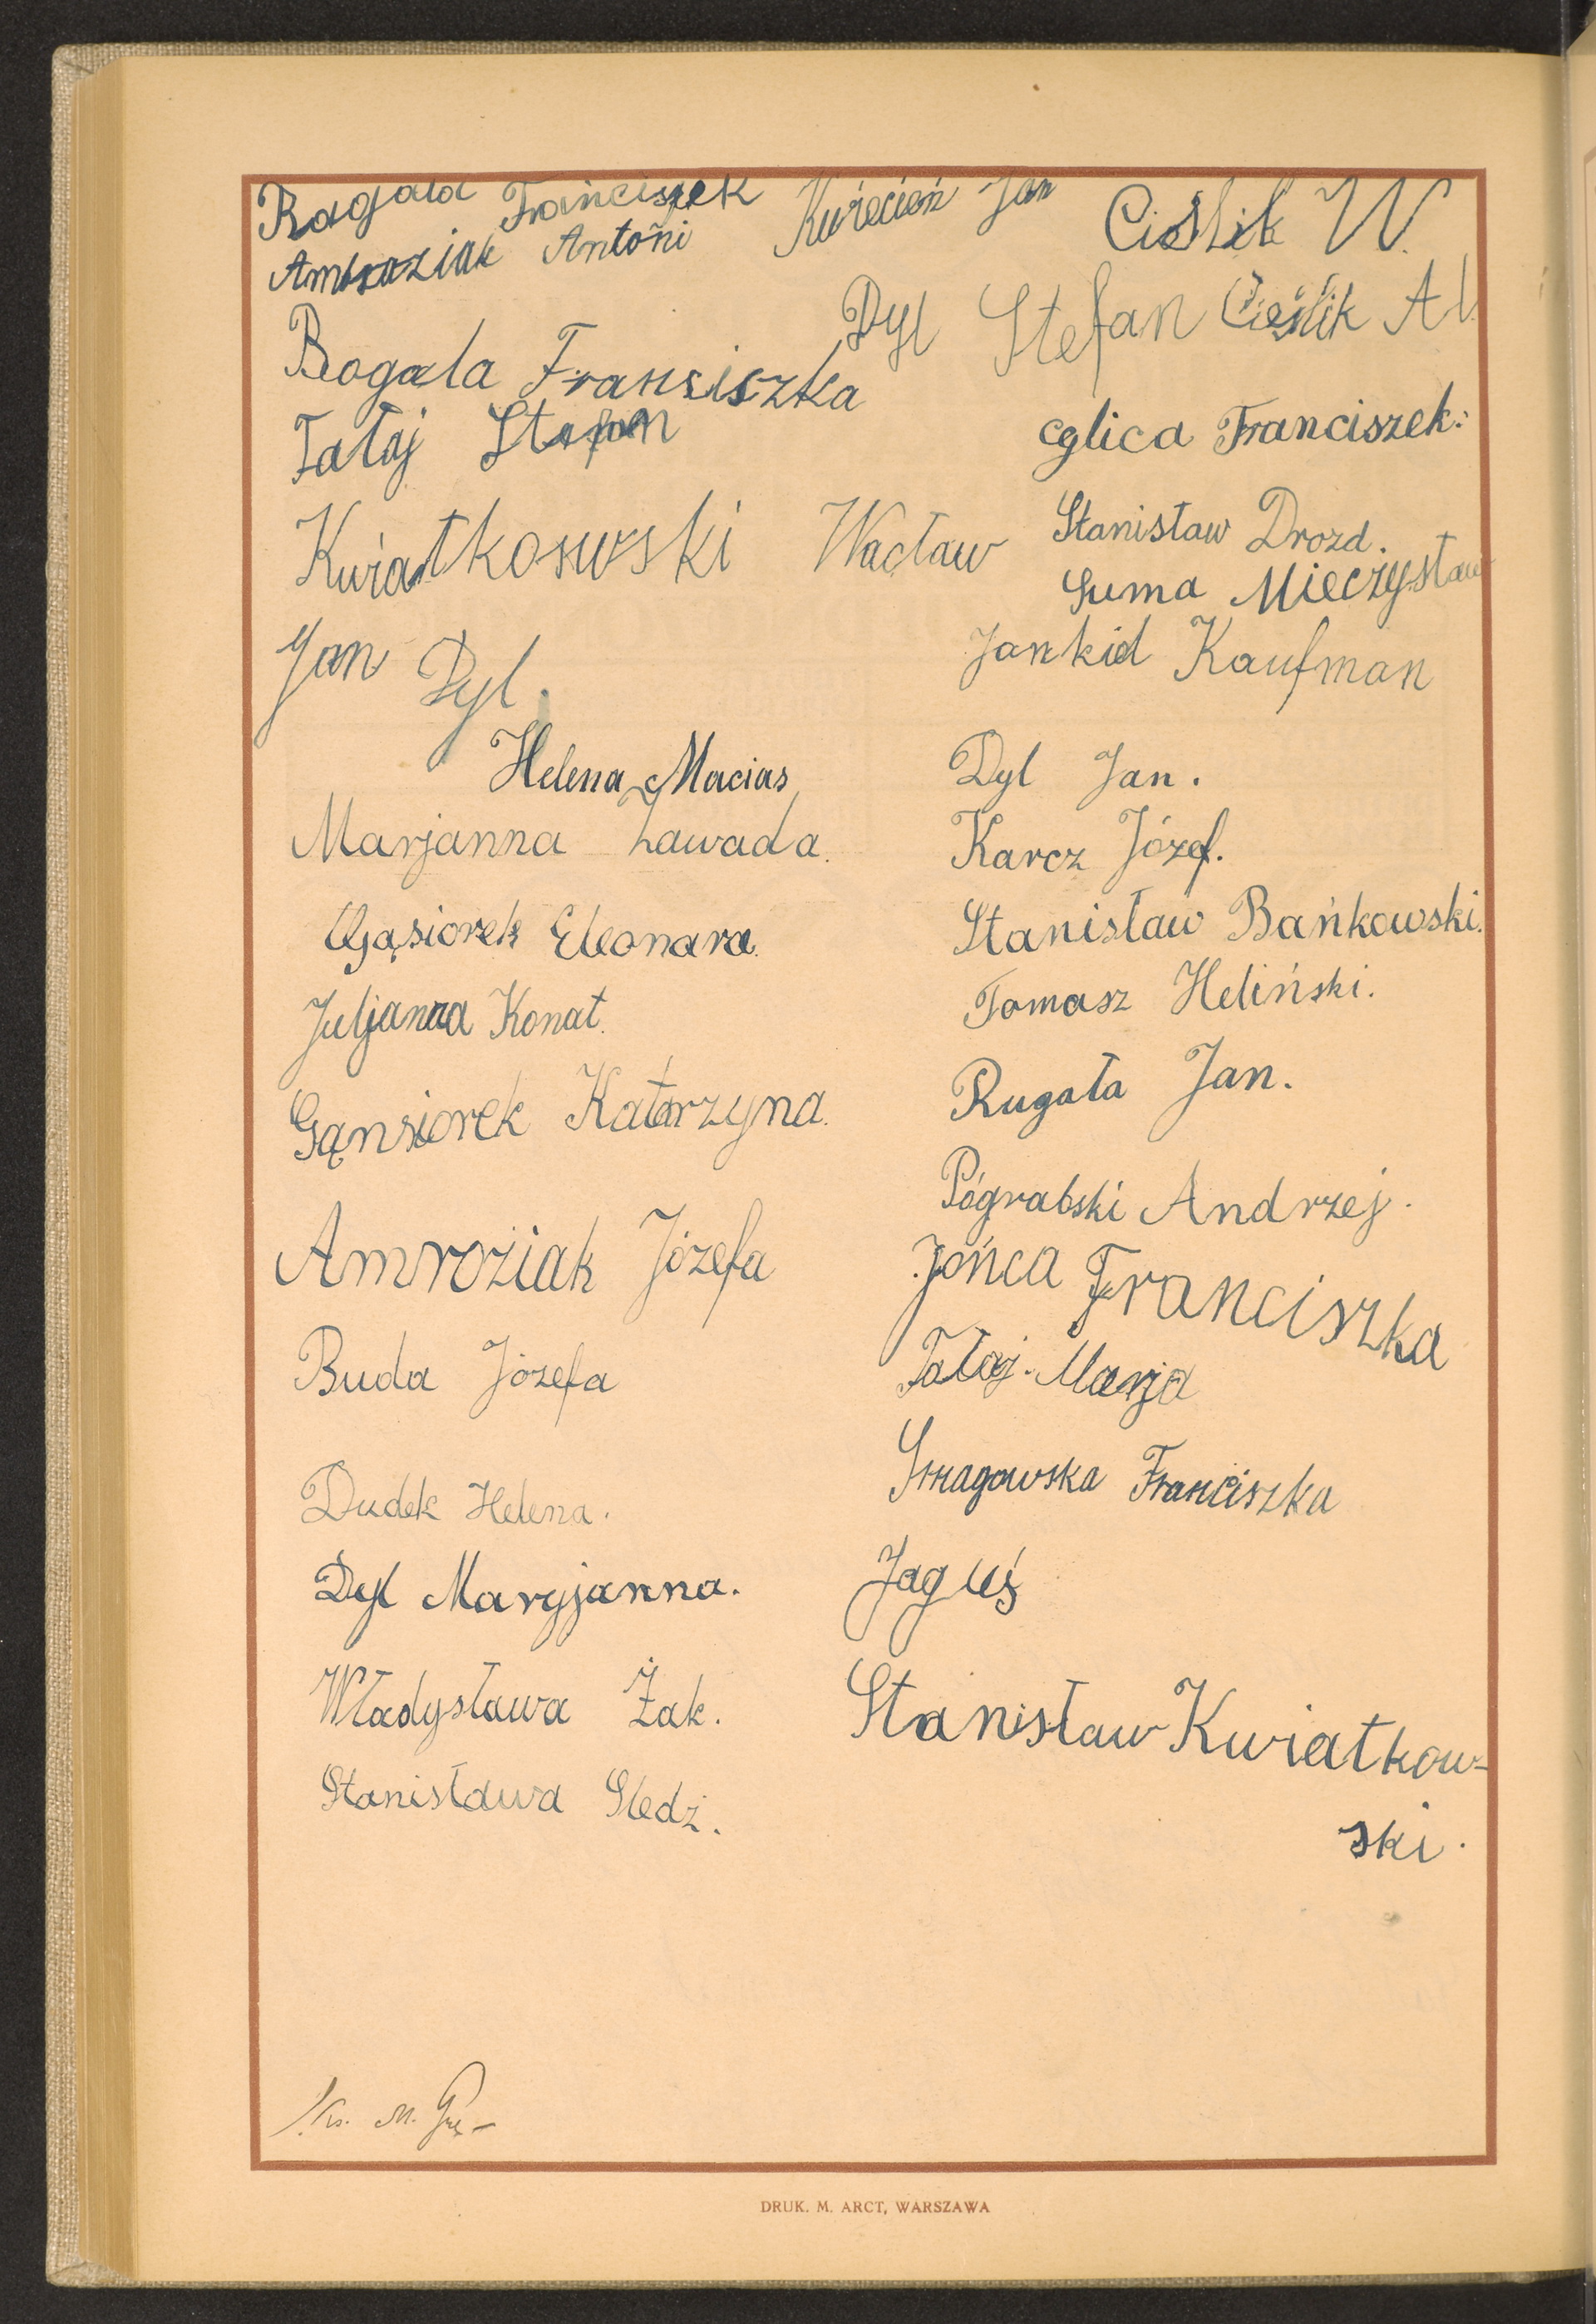 Ragala Franciszek Kwiecień Jan Cislik W.
Ambroziak Antoni
Dyl Stefan Cieślik A
Bogala Franciszka
Tałaj Stefan
Eglica Franciszek.
Kwiatkowski Wacław
Stanisław Drozd.
Suma Mieczysław
Jan Dyl.
Jankid Kaufman
Helena Macias
Dyl Jan.
Marjanna Zawada.
Karcz Józef.
Gąsiorek Eleonara.
Stanisław Bańkowski.
Juljanna Konat.
Tomasz Heliński.
Gąnsiorek Katarzyna.
Rugała Jan.
Pógrabski Andrzej.
Amroziak Józefa
Jońca Franciszka
Buda Józefa
Tałaj Marja
Smagowska Franciszka
Dudek Helena.
Dyl Maryjanna.
Jaguś
Władysława Żak.
Stanisław Kwiatkow-
ski.
Stanisława Sledź.
Ks. M.
DRUK. M. ARCT, WARSZAWA